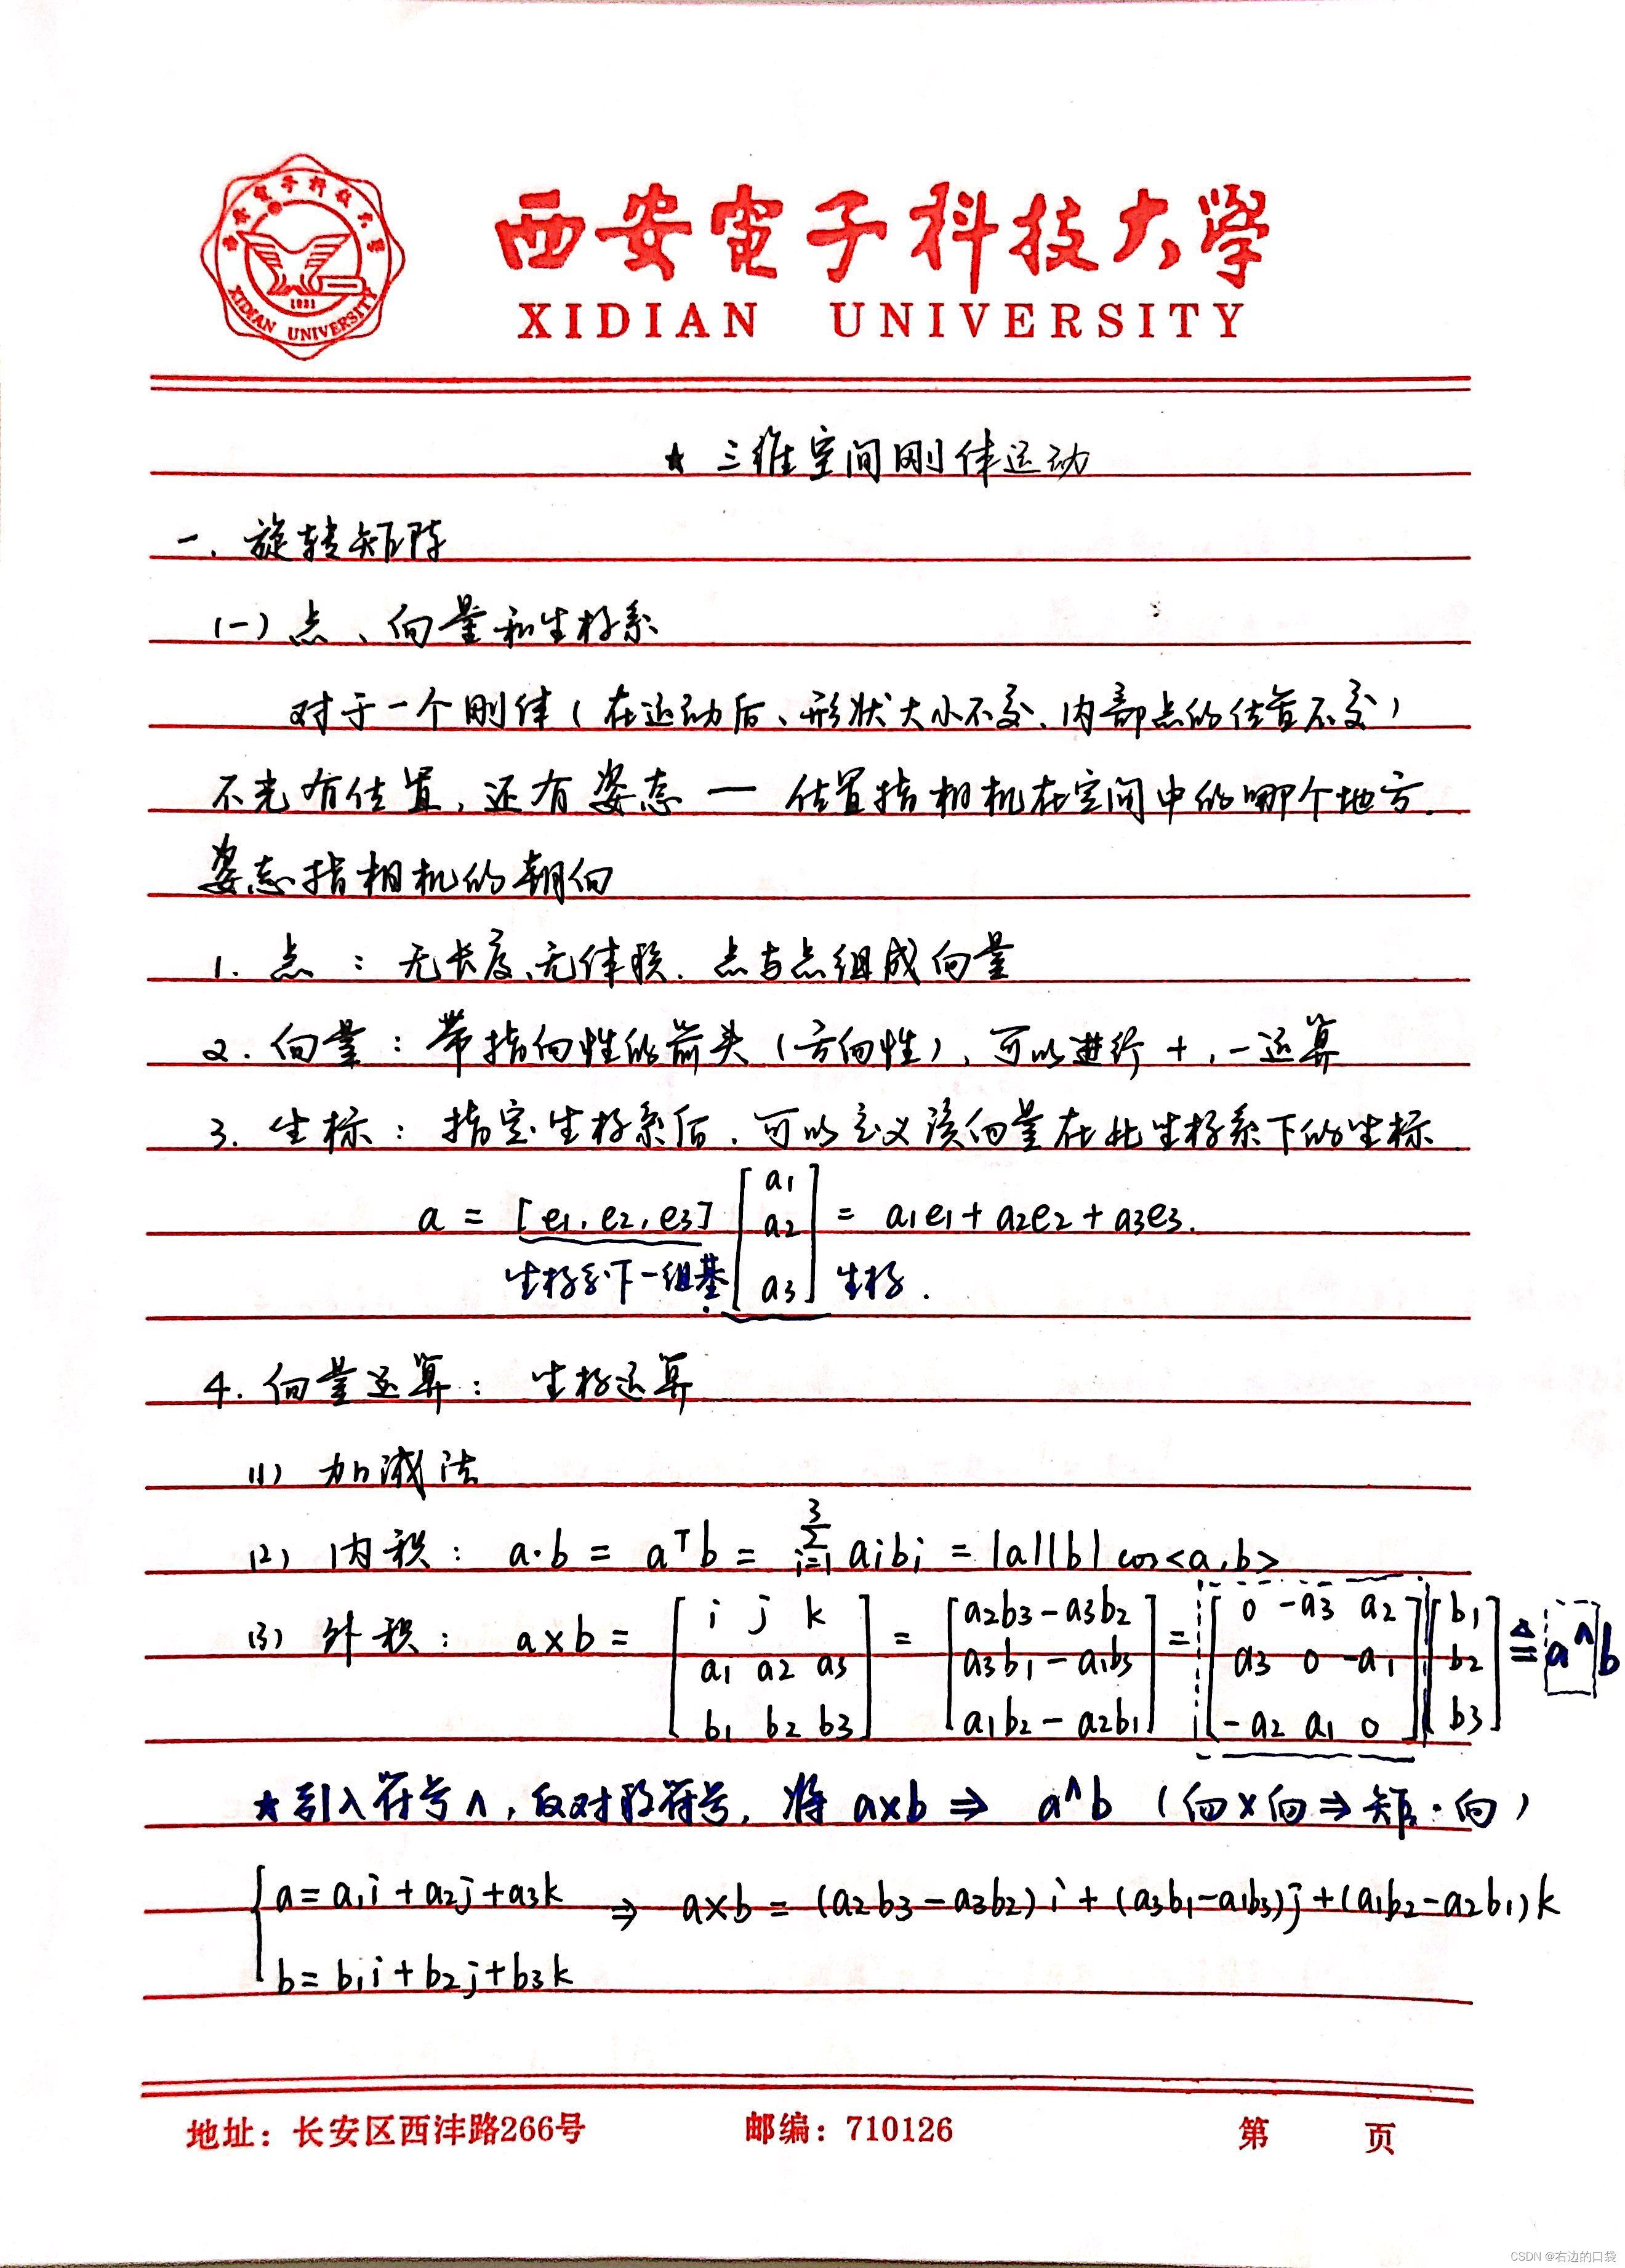 西安電子科技大學
XIDIAN UNIVERSITY
1931
XIDIAN UNIVERSITY
★ 三维空间刚体运动
一. 旋转矩阵
(一) 点、向量和坐标系
对于一个刚体（在运动后、形状大小不变、内部点的位置不变）
不光有位置, 还有姿态 — 位置指相机在空间中的哪个地方.
姿态指相机的朝向
1. 点 : 无长度、无体积. 点与点组成向量
2. 向量 : 带指向性的箭头 (方向性), 可以进行 +, - 运算
3. 坐标 : 指定坐标系后, 可以定义该向量在此坐标系下的坐标.
a = [e1, e2, e3] [a1 a2 a3] = a1e1 + a2e2 + a3e3.
坐标系下一组基. 坐标.
4. 向量运算 : 坐标运算
(1) 加减法
(2) 内积 : a·b = aᵀb = Σ_{i=1}^{3} aibi = |a||b| cos<a,b>
(3) 外积 : a×b = [i j k; a1 a2 a3; b1 b2 b3] = [a2b3-a3b2; a3b1-a1b3; a1b2-a2b1] = [0 -a3 a2; a3 0 -a1; -a2 a1 0] [b1; b2; b3] ≜ a^b
★ 引入符号∧, 反对称符号, 将 a×b ⇒ a^b (向×向⇒矩·向)
{ a = a1i + a2j + a3k ⇒ a×b = (a2b3-a3b2)i + (a3b1-a1b3)j + (a1b2-a2b1)k
b = b1i + b2j + b3k
地址：长安区西沣路266号 邮编：710126 第 页
CSDN @右边的口袋